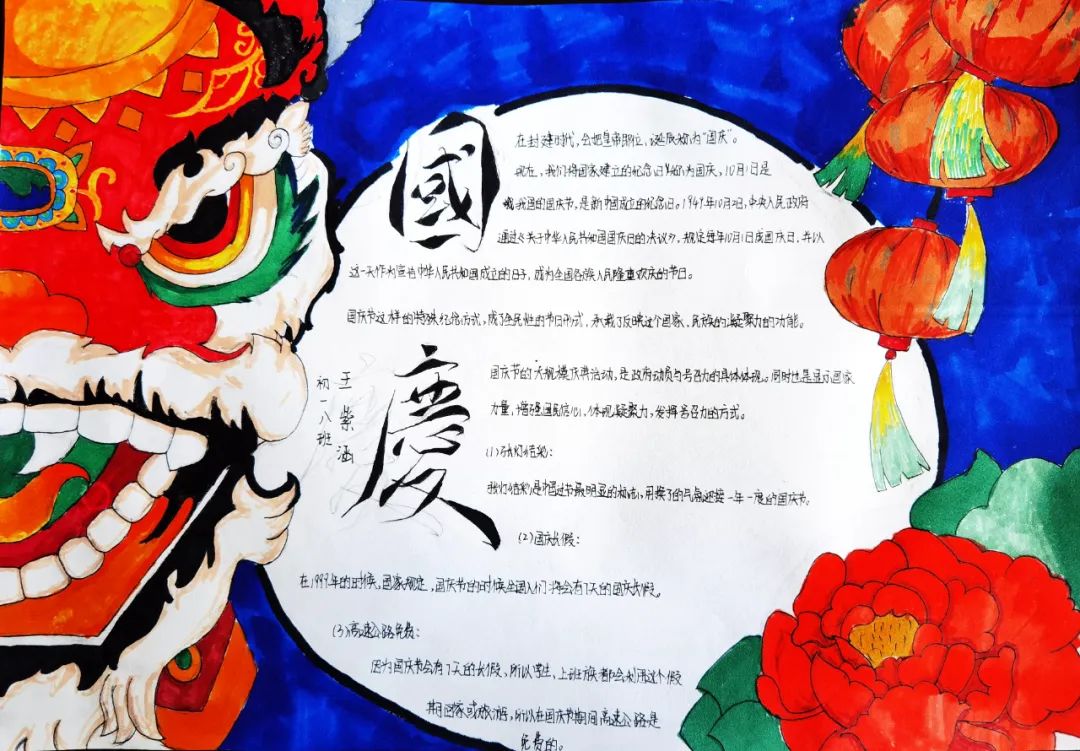 國慶
初一八班
王紫涵
在封建时代，会把皇帝即位、诞辰称为“国庆”。
现在，我们将国家建立的纪念日称为国庆，10月1日是
我国的国庆节，是新中国成立的纪念日。1949年10月2日，中央人民政府
通过《关于中华人民共和国国庆日的决议》，规定每年10月1日成国庆日，并以
这一天作为宣告中华人民共和国成立的日子，成为全国各族人民隆重欢庆的节日。
国庆节这样的特殊纪念方式，成了全民性的节日形式，承载了反映这个国家、民族的凝聚力的功能。
国庆节的大规模庆典活动，是政府动员与号召力的具体体现。同时也是显示国家
力量，增强国民信心，体现凝聚力，发挥号召力的方式。
(1)张灯结彩：
结彩是中国过节最明显的标志，用 的气氛迎接一年一度的国庆节。
(2)国庆长假：
在1999年的时候，国家规定，国庆节的时候全国人们将会有7天的国庆长假。
(3)高速公路免费：
因为国庆节会有7天的长假，所以学生，上班族都会利用这个假
期回家或旅游，所以在国庆节期间高速公路是
免费的。